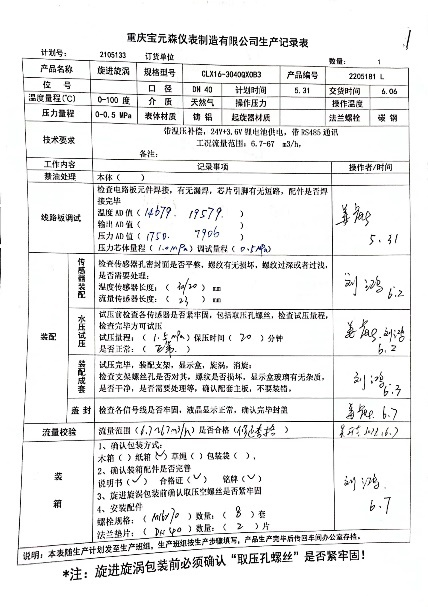 重庆宝元森仪表制造有限公司生产记录表
计划号: 2105133 订货单位 数量: 1
产品名称 旋进旋涡 规格型号 CLX16-3040QX0B3 产品编号 2205181 L
位 号 口 径 DN 40 计划时间 5.31 交货时间 6.06
温度量程(℃) 0-100 度 介 质 天然气 操作压力 操作温度
压力量程 0-0.5 MPa 表体材质 铸 铝 起旋器材质 法兰螺栓 碳 钢
技术要求
带温压补偿, 24V+3.6V 锂电池供电, 带 RS485 通讯
工况流量范围: 6.7-67 m3/h,
备注:
工作内容 记录事项 操作者/时间
禁油处理 本体 ( )
线路板调试
检查电路板元件焊接, 有无漏焊, 芯片引脚有无短路, 配件是否焊
接完毕
温度 AD 值 ( 14679. 19579. )
输出 AD 值 ( )
压力 AD 值 ( 1750. 7906 )
压力芯体量程 ( 1.0MPa ) 调试量程 ( 0.5MPa )
5.31
装配
传感器装配
检查传感器孔密封面是否平整, 螺纹有无损坏, 螺纹过深或者过浅,
是否需要处理:
温度传感器长度: ( ) mm
流量传感器长度: ( 23 ) mm
刘鸿 6.2
水压试压
试压前检查各传感器是否紧固, 包括取压孔螺丝, 检查试压量程,
检查完毕方可试压
试压量程: ( 1.5MPa ) 保压时间 ( 20 ) 分钟
是否正常: ( 正常 )
刘鸿
6.2
装配成套
试压完毕, 装配支架, 显示盒, 旋涡, 消旋:
检查支架螺丝孔是否对其, 螺纹是否损坏, 显示盒玻璃有无杂质,
是否干净, 是否需要处理等, 确认配套主板, 不要装错。
刘鸿 6.3
盖 封 检查各信号线是否牢固, 液晶显示正常, 确认完毕封盖 6.7
流量校验 流量范围 (6.7~67m3/h) 是否合格 ( ) 6.7
装箱
1、确认包装方式:
木箱 ( ) 纸箱 (✓) 草绳 ( ) 包装袋 ( ),
2、确认装箱配件是否完善
说明书 (✓) 合格证 (✓) 铭牌 (✓)
3、旋进旋涡包装前确认取压空螺丝是否紧固
4、安装配件
螺栓规格: ( M16*70 ) 数量: ( 8 ) 套
法兰垫片: ( DN40 ) 数量: ( 2 ) 片
刘鸿.
6.7
说明: 本表随生产计划发至生产班组, 生产班组按生产步骤填写, 产品生产完毕后传回车间办公室存档。
*注: 旋进旋涡包装前必须确认“取压孔螺丝”是否紧牢固!